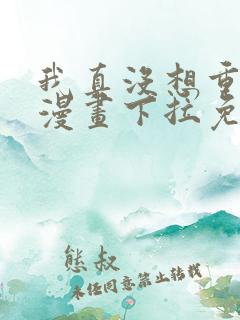 我真没想重
漫畫下拉免
熊叔
未任同意禁止转载